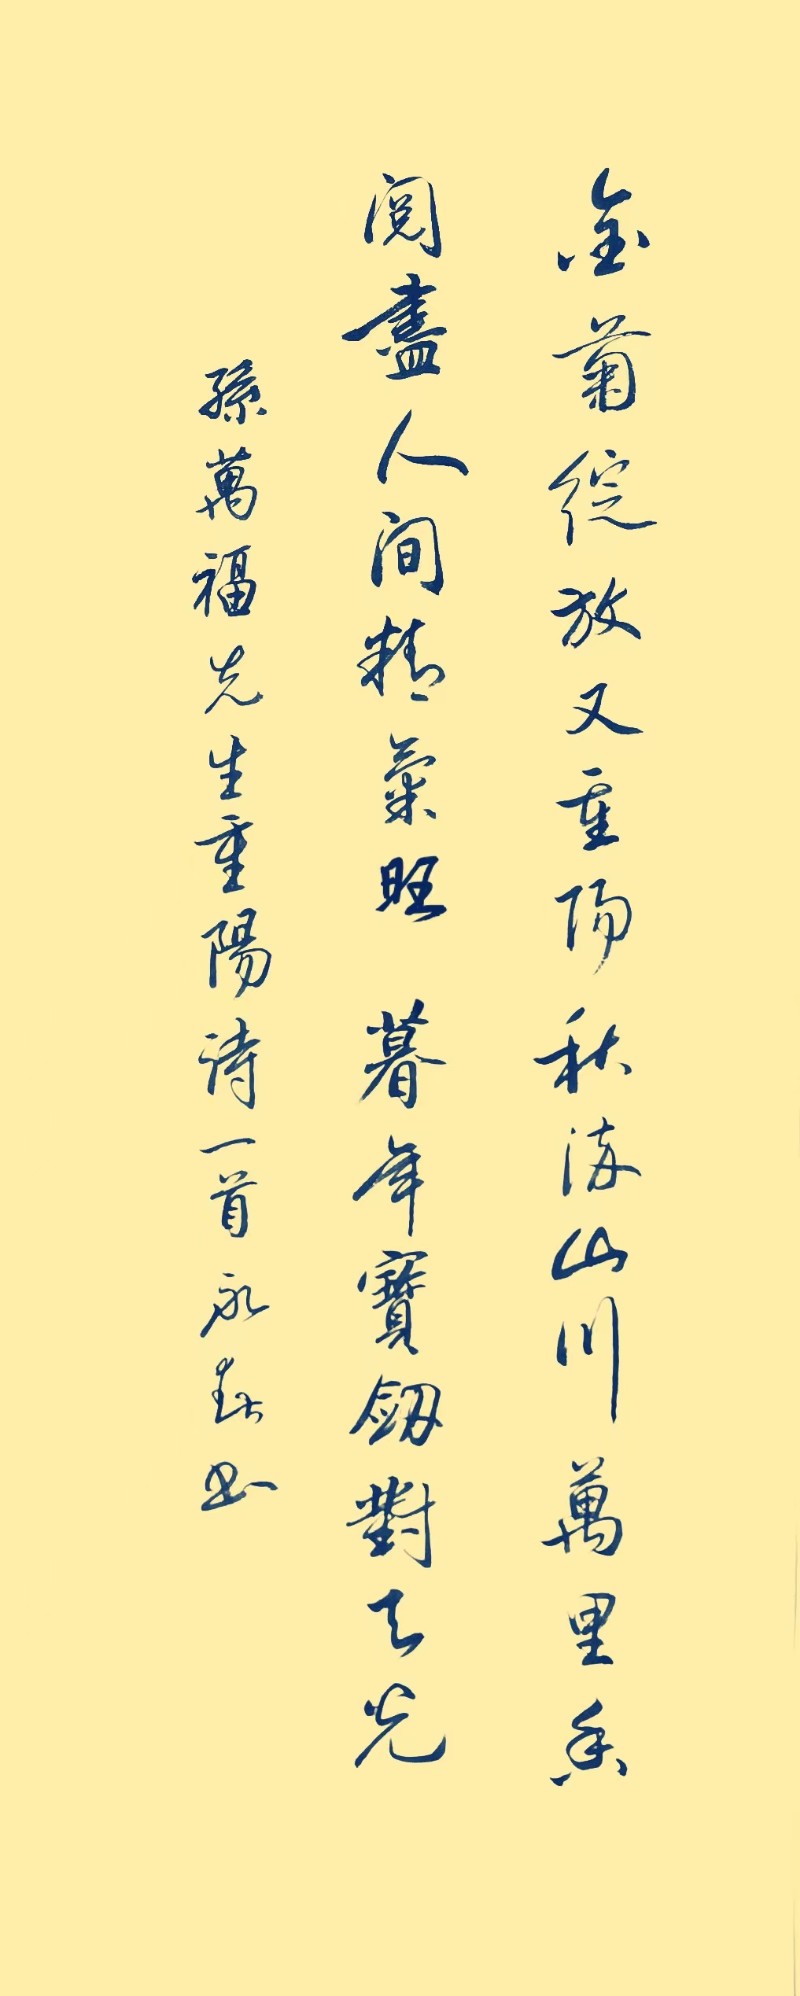 金菊綻放又重陽秋染山川萬里香
閲盡人间精氣旺暮年寶劔對天光
孫萬福先生重陽诗一首永赴书